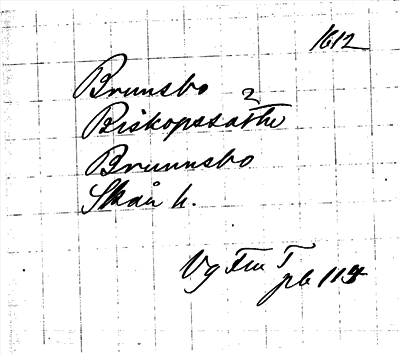 1612
Brunsbo
Biskopssäthe
Brunnsbo
Skån h.
Vg Fru I
pb 113